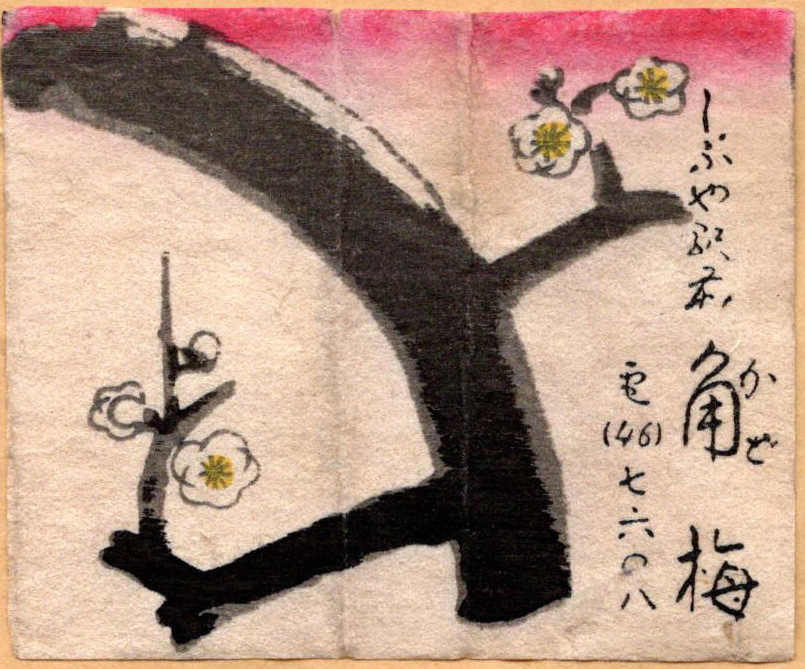 しぶや駅前
角梅
かど
電
(46)
七六〇八